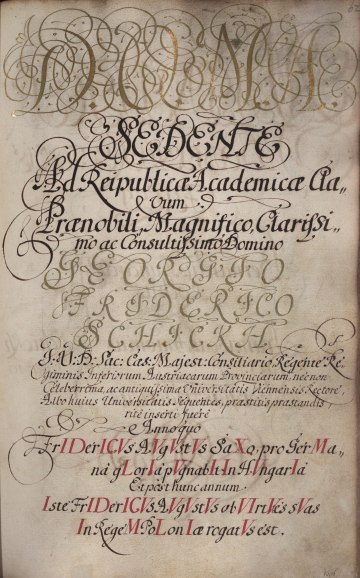 D. O. M. A.
SEDENTE
Ad Reipublicæ Academicæ Cla-
vum
Prænobili, Magnifico, Clarißi-
mo ac Consultißimo Domino
GEORGIO
FRIDERICO
SCHICKH
I: U: D: Sac: Cæs: Majest: Consiliario, Regente Re-
giminis Inferiorum Austriacarum Provinciarum, nec non
Celeberrimæ, ac antiquissimæ Universitatis Viennensis Rectore,
Albo huius Universitatis sequentes, præstitis præstandis
ritè inserti fuêre
Anno quo
FrIDerICVs AVgVstVs SaXo, pro GerMa-
na gLorIa pVgnabIt In HVngarIa
Et post hunc annum
Iste FrIDerICVs AVgVstVs ob VIrtVtes sVas
In Rege MPoLonIæ rogatVs est.